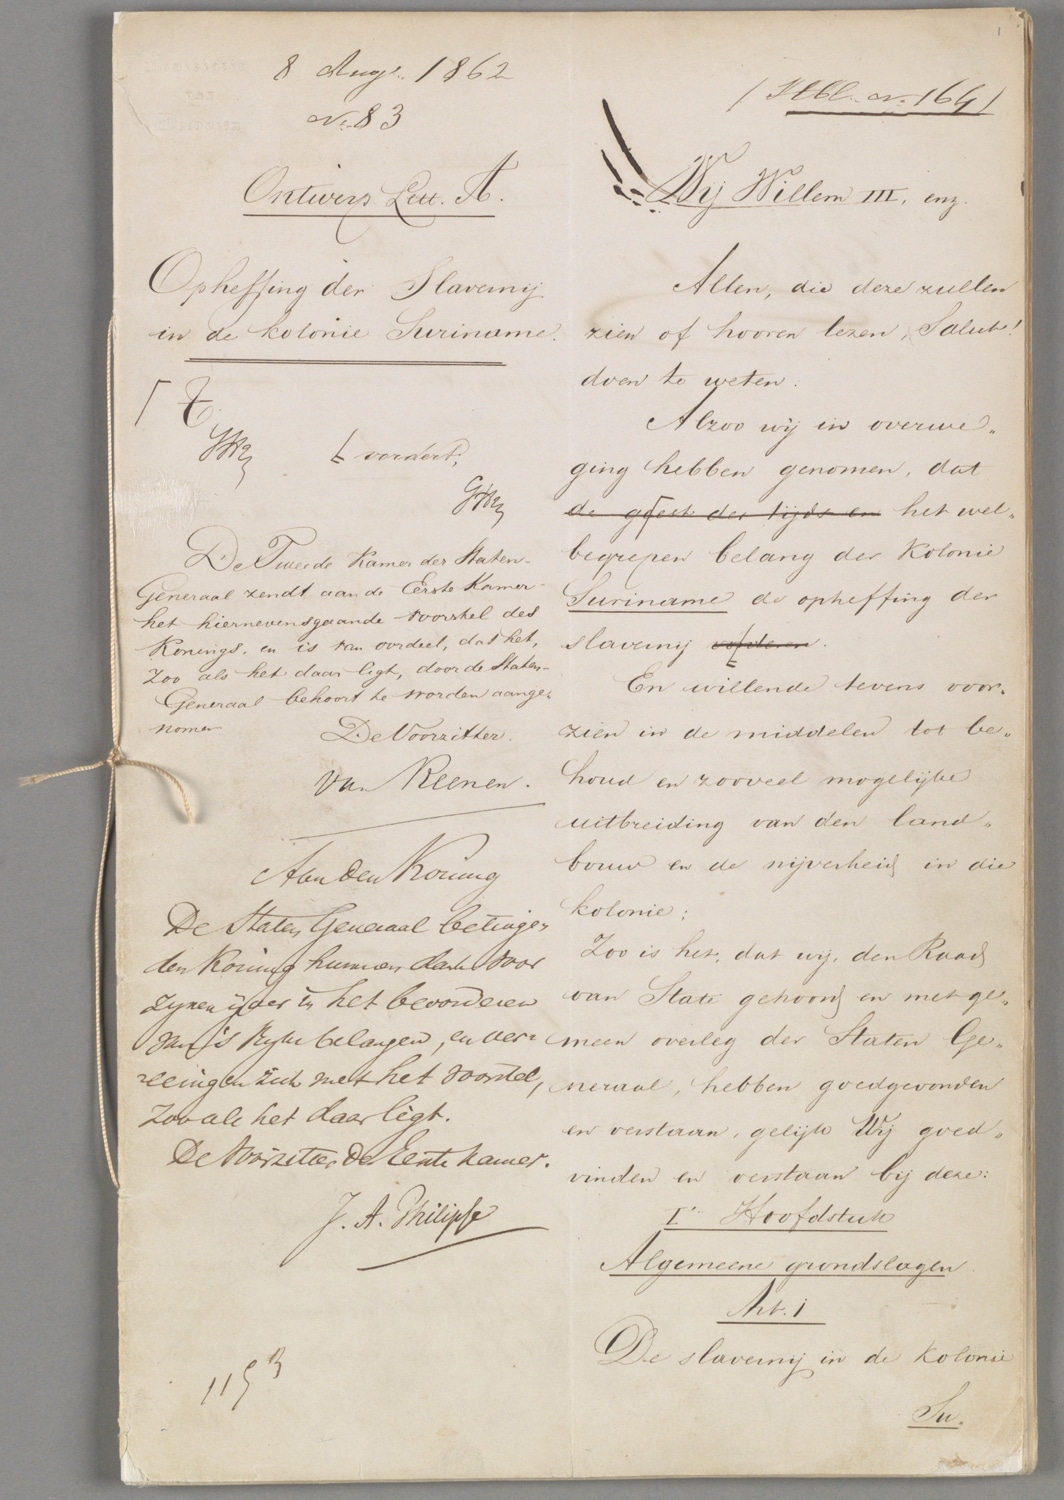 8 Augs. 1862
No. 83
Ontwerp Lett. A.
Opheffing der Slavernij
in de kolonie Suriname.
vordert,
De Tweede Kamer der Staten-
Generaal zendt aan de Eerste Kamer
het hiernevensgaande voorstel des
Konings, en is van oordeel, dat het,
zoo als het daar ligt, door de Staten-
Generaal behoort te worden aange-
nomen
De Voorzitter.
Van Reenen.
Aan den Koning
De Staten Generaal betuigen
den Koning hunnen dank voor
zijnen ijver in het bevorderen
van 's Rijks belangen, en ver-
eenigen zich met het voorstel,
zoo als het daar ligt.
De Voorzitter der Eerste Kamer.
J. A. Philipse
115
(Stbl. No. 164)
Wij Willem III, enz.
Allen, die deze zullen
zien of hooren lezen, Salut!
doen te weten.
Alzoo wij in overwe-
ging hebben genomen, dat
de geest des tijds en het wel-
begrepen belang der kolonie
Suriname de opheffing der
slavernij vorderen.
En willende tevens voor-
zien in de middelen tot be-
houd en zooveel mogelijke
uitbreiding van den land-
bouw en de nijverheid in die
kolonie;
Zoo is het, dat wij, den Raad
van State gehoord en met ge-
meen overleg der Staten Ge-
neraal, hebben goedgevonden
en verstaan, gelijk Wij goed-
vinden en verstaan bij deze:
Ie Hoofdstuk
Algemeene grondslagen.
Art. 1
De slavernij in de kolonie
Su.